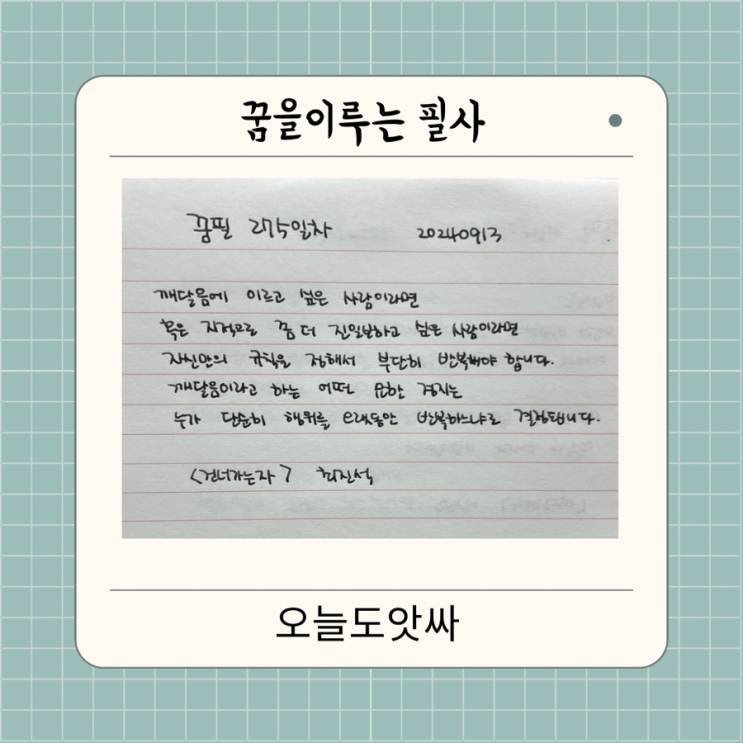 꿈을이루는 필사
꿈필 275일차 20240913
깨달음에 이르고 싶은 사람이라면
혹은 지적으로 좀 더 진일보하고 싶은 사람이라면
자신만의 규칙을 정해서 부단히 반복해야 합니다.
깨달음이라고 하는 어떤 묘한 경지는
누가 단순히 행위를 오랫동안 반복하느냐로 결정됩니다.
<건너가는자> 최진석
오늘도앗싸